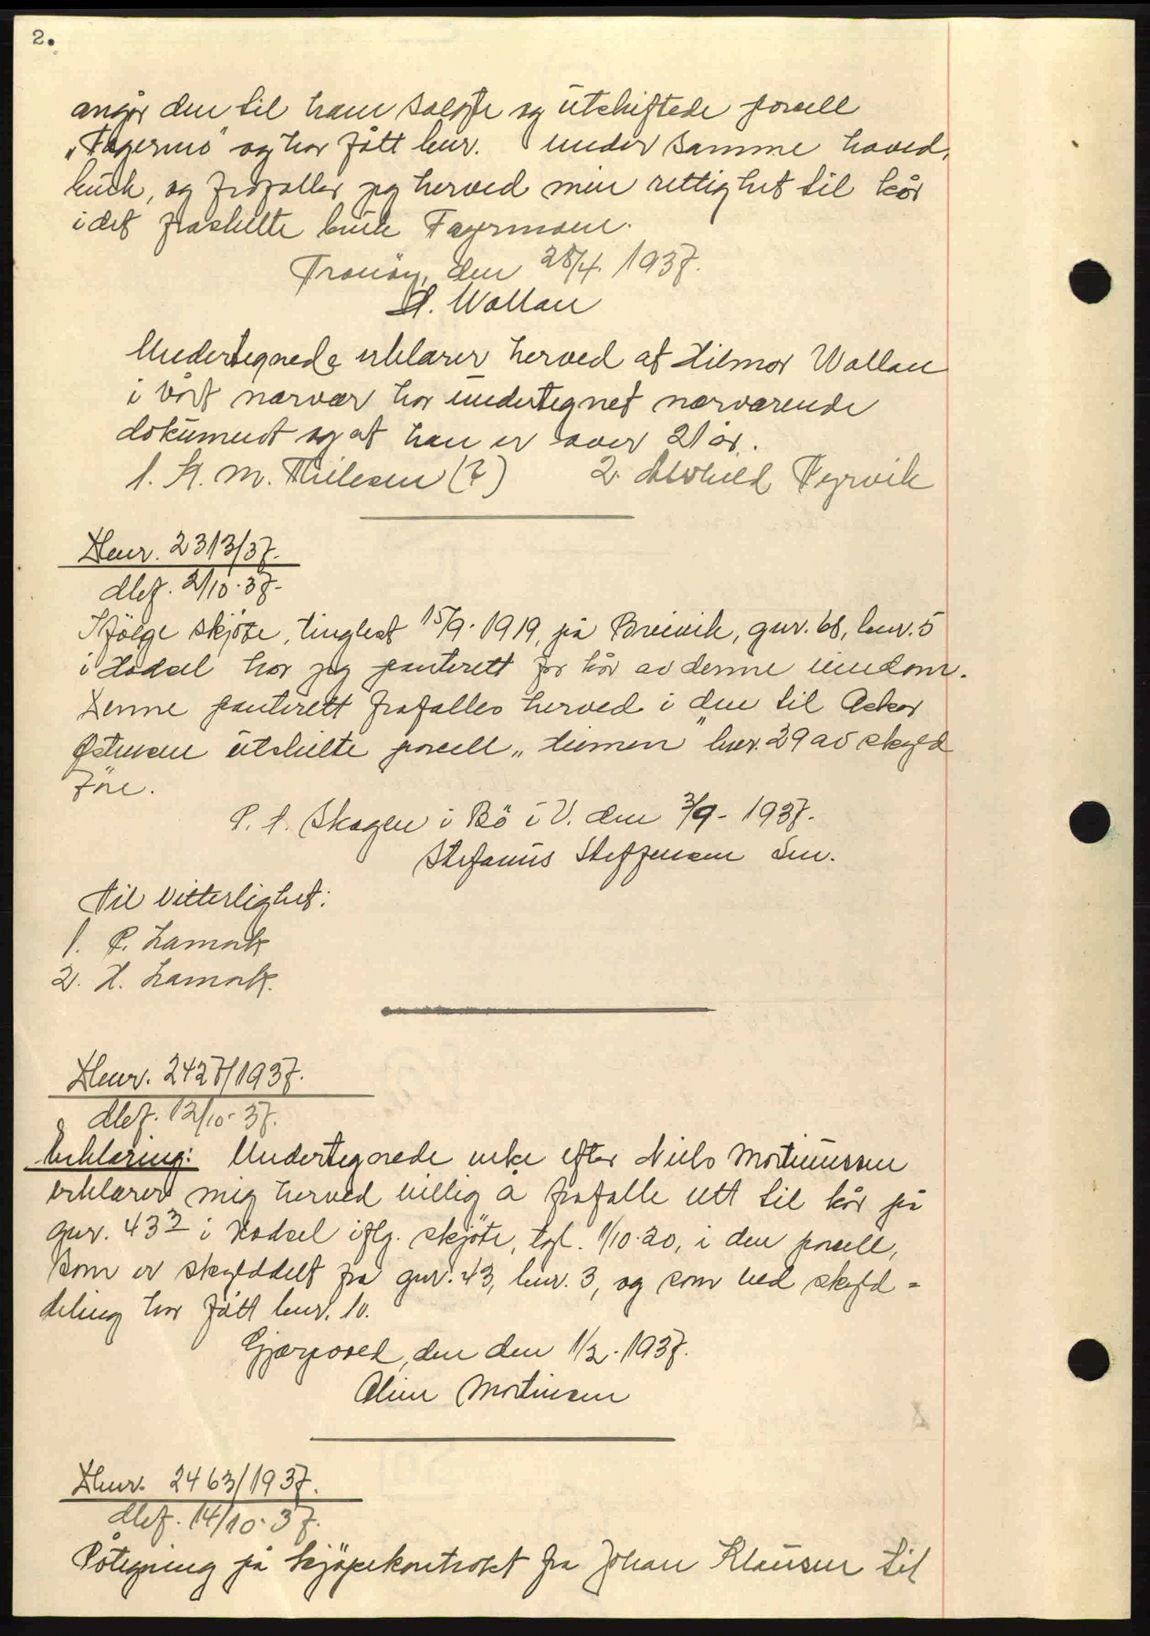 2.
angår den til ham solgte og utskiftede parcell
„Fagermo" og har fått bnr. under samme hoved,
bruk, og frafaller jeg herved min rettighet til kår
i det fraskilte bruk Fagermoen.
Tranöy, den 28/4. 1937.
H. Wollan
Undertegnede erklærer herved at Hilmar Wollan
i vårt nærvær har undertegnet nærværende
dokument og at han er over 21 år.
1. K. M. Thilesen (?) 2. Fyrvik
Dnr. 2313/37.
dbf. 2/10-37.
Ifölge skjöte, tinglest 15/9-1919, på Breivik, gnr. 68, bnr. 5
i Hadsel har jeg panterett for kår av denne eiendom.
Denne panterett frafalles herved i den til Asker
utskilte parcell „ " bnr. 29 av skyld
7 öre.
P. t. Skagen i Bö i V. den 3/9-1937.
Stefanus Steffensen Sen.
Til vitterlighet:
1. P. Lamark
2. H. Lamark.
Dnr. 2427/1937.
dbf. 12/10-37.
Erklæring: Undertegnede enke efter Niels Mortinussen
erklærer mig herved villig å frafalle rett til kår på
gnr. 43 3 i Hadsel iflg. skjöte, tgl. 1/10-20, i den parcell,
som er skylddelt fra gnr. 43, bnr. 3, og som ved skyld-
deling har fått bnr. 10.
den den 1/2-1937.
Aline Mortinsen
Dnr. 2463/1937.
dbf. 14/10-37.
Påtegning på kjöpekontrakt fra Johan Klausen til